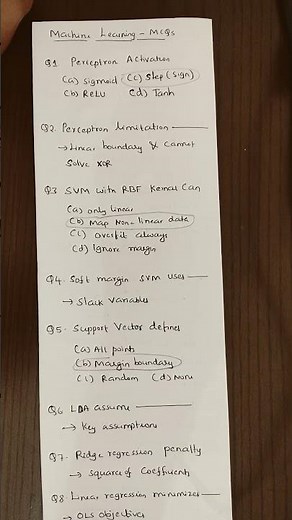 Machine Learning - MCQs
Q1 Perceptron Activation
(a) sigmoid (c) Step (sign)
(b) ReLU (d) Tanh
Q2. Perceptron limitation ———
→ Linear boundary & cannot
solve XOR
Q3 SVM with RBF Kernel Can
(a) only linear
(b) Map Non-linear data
(c) overfit always
(d) Ignore margin
Q4. Soft margin SVM uses ——
→ Slack variables
Q5. Support Vector defines
(a) All points
(b) Margin boundary
(c) Random (d) None
Q6 LDA assume ———
→ Key assumptions
Q7. Ridge regression penalty
→ square of Coefficients
Q8 Linear regression minimizes ——
→ OLS objective